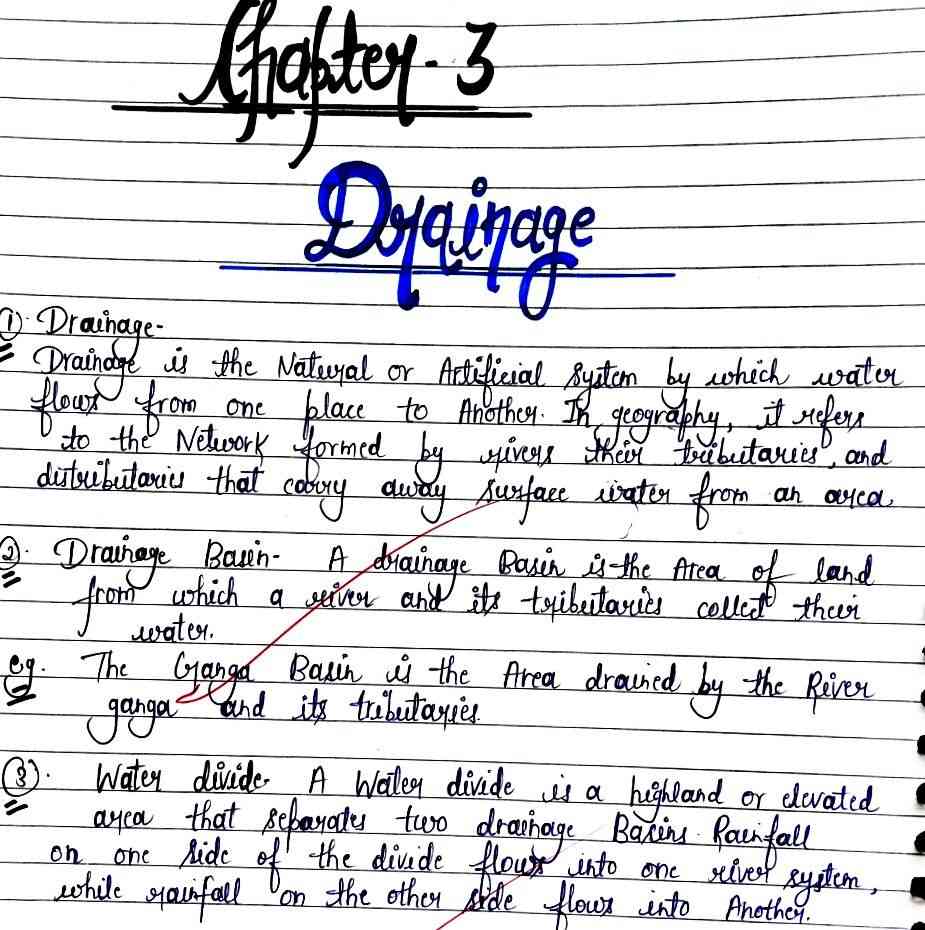 Chapter - 3
Drainage
① Drainage-
Drainage is the Natural or Artificial System by which water
flows from one place to Another. In geography, it refers
to the Network formed by rivers their tributaries, and
distributaries that carry away surface water from an area.
②. Drainage Basin- A drainage Basin is the Area of land
from which a river and its tributaries collect their
water.
eg. The Ganga Basin is the Area drained by the River
ganga and its tributaries.
③. Water divide- A Water divide is a highland or elevated
area that separates two drainage Basins Rainfall
on one side of the divide flows into one river system,
while rainfall on the other side flows into Another.